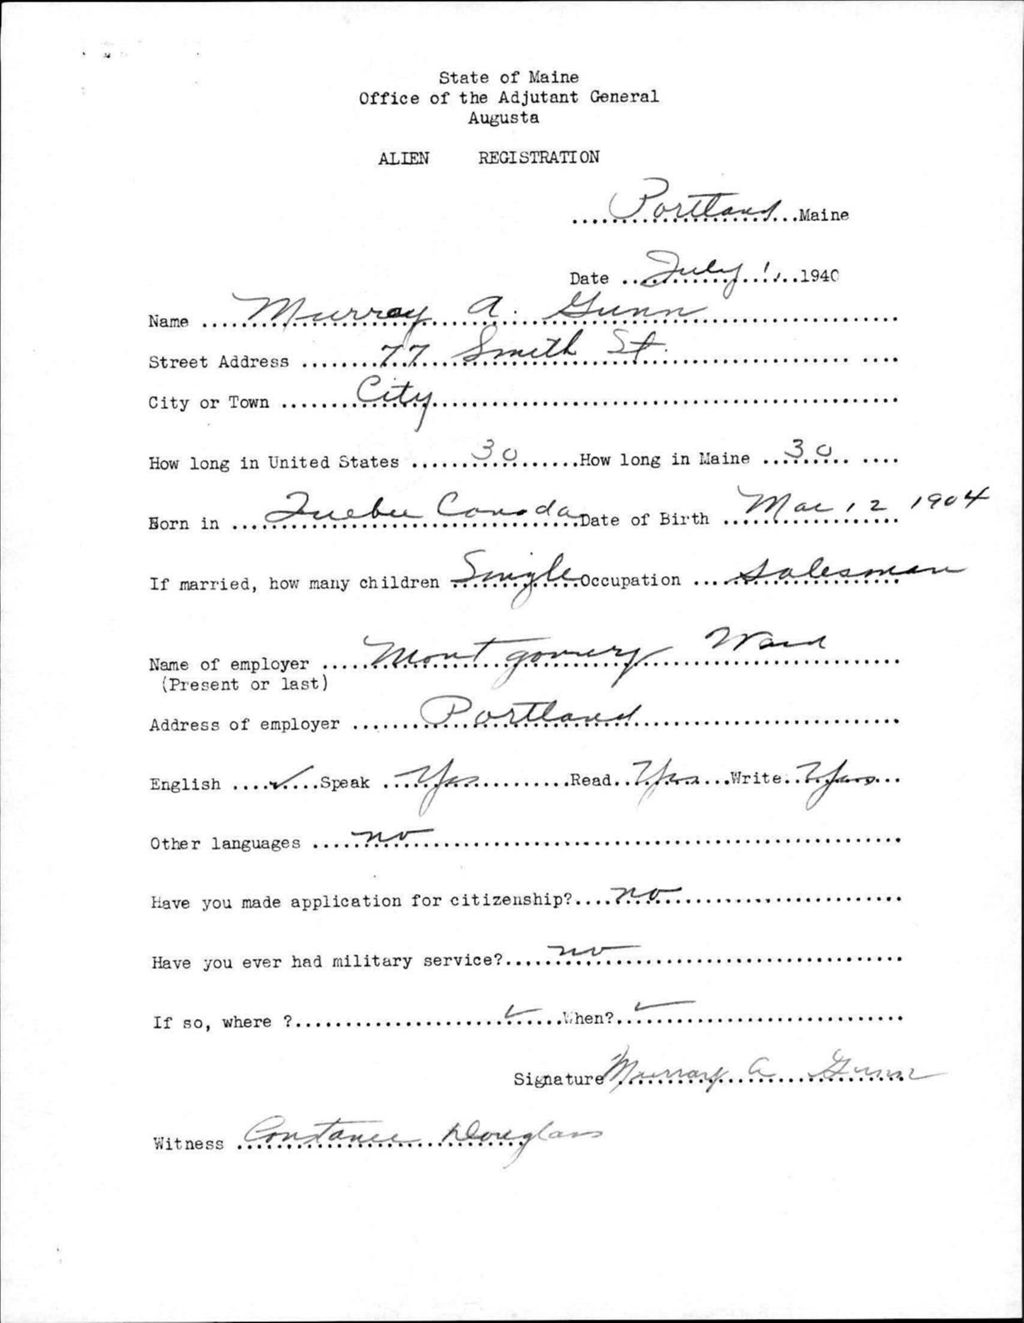 State of Maine
Office of the Adjutant General
Augusta
ALIEN REGISTRATION
Portland Maine
Date July 1, 1940
Name Murray A. Gunn
Street Address 77 Smith St.
City or Town City
How long in United States 30 How long in Maine 30
Born in Quebec Canada Date of Birth Mar 12 1904
If married, how many children Single Occupation Salesman
Name of employer Montgomery Ward
(Present or last)
Address of employer Portland
English ✓ Speak Yes Read Yes Write Yes
Other languages no
Have you made application for citizenship? no
Have you ever had military service? no
If so, where ? ✓ When? ✓
Signature Murray A Gunn
Witness Constance Douglass